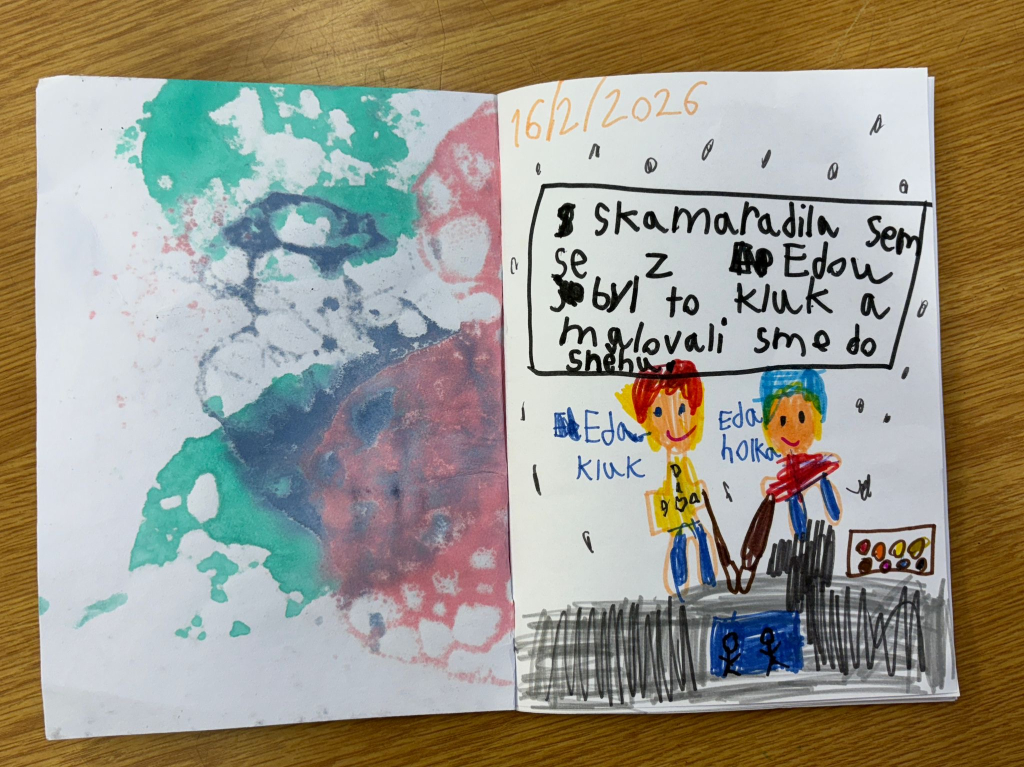 16/2/2026
skamaradila sem
se z Edou
byl to kluk a
malovali sme do
sněhu.
Eda
kluk
Eda
holka